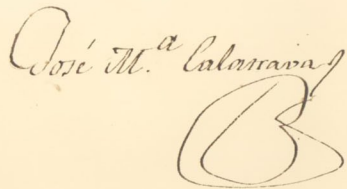 José M.ª Calatrava